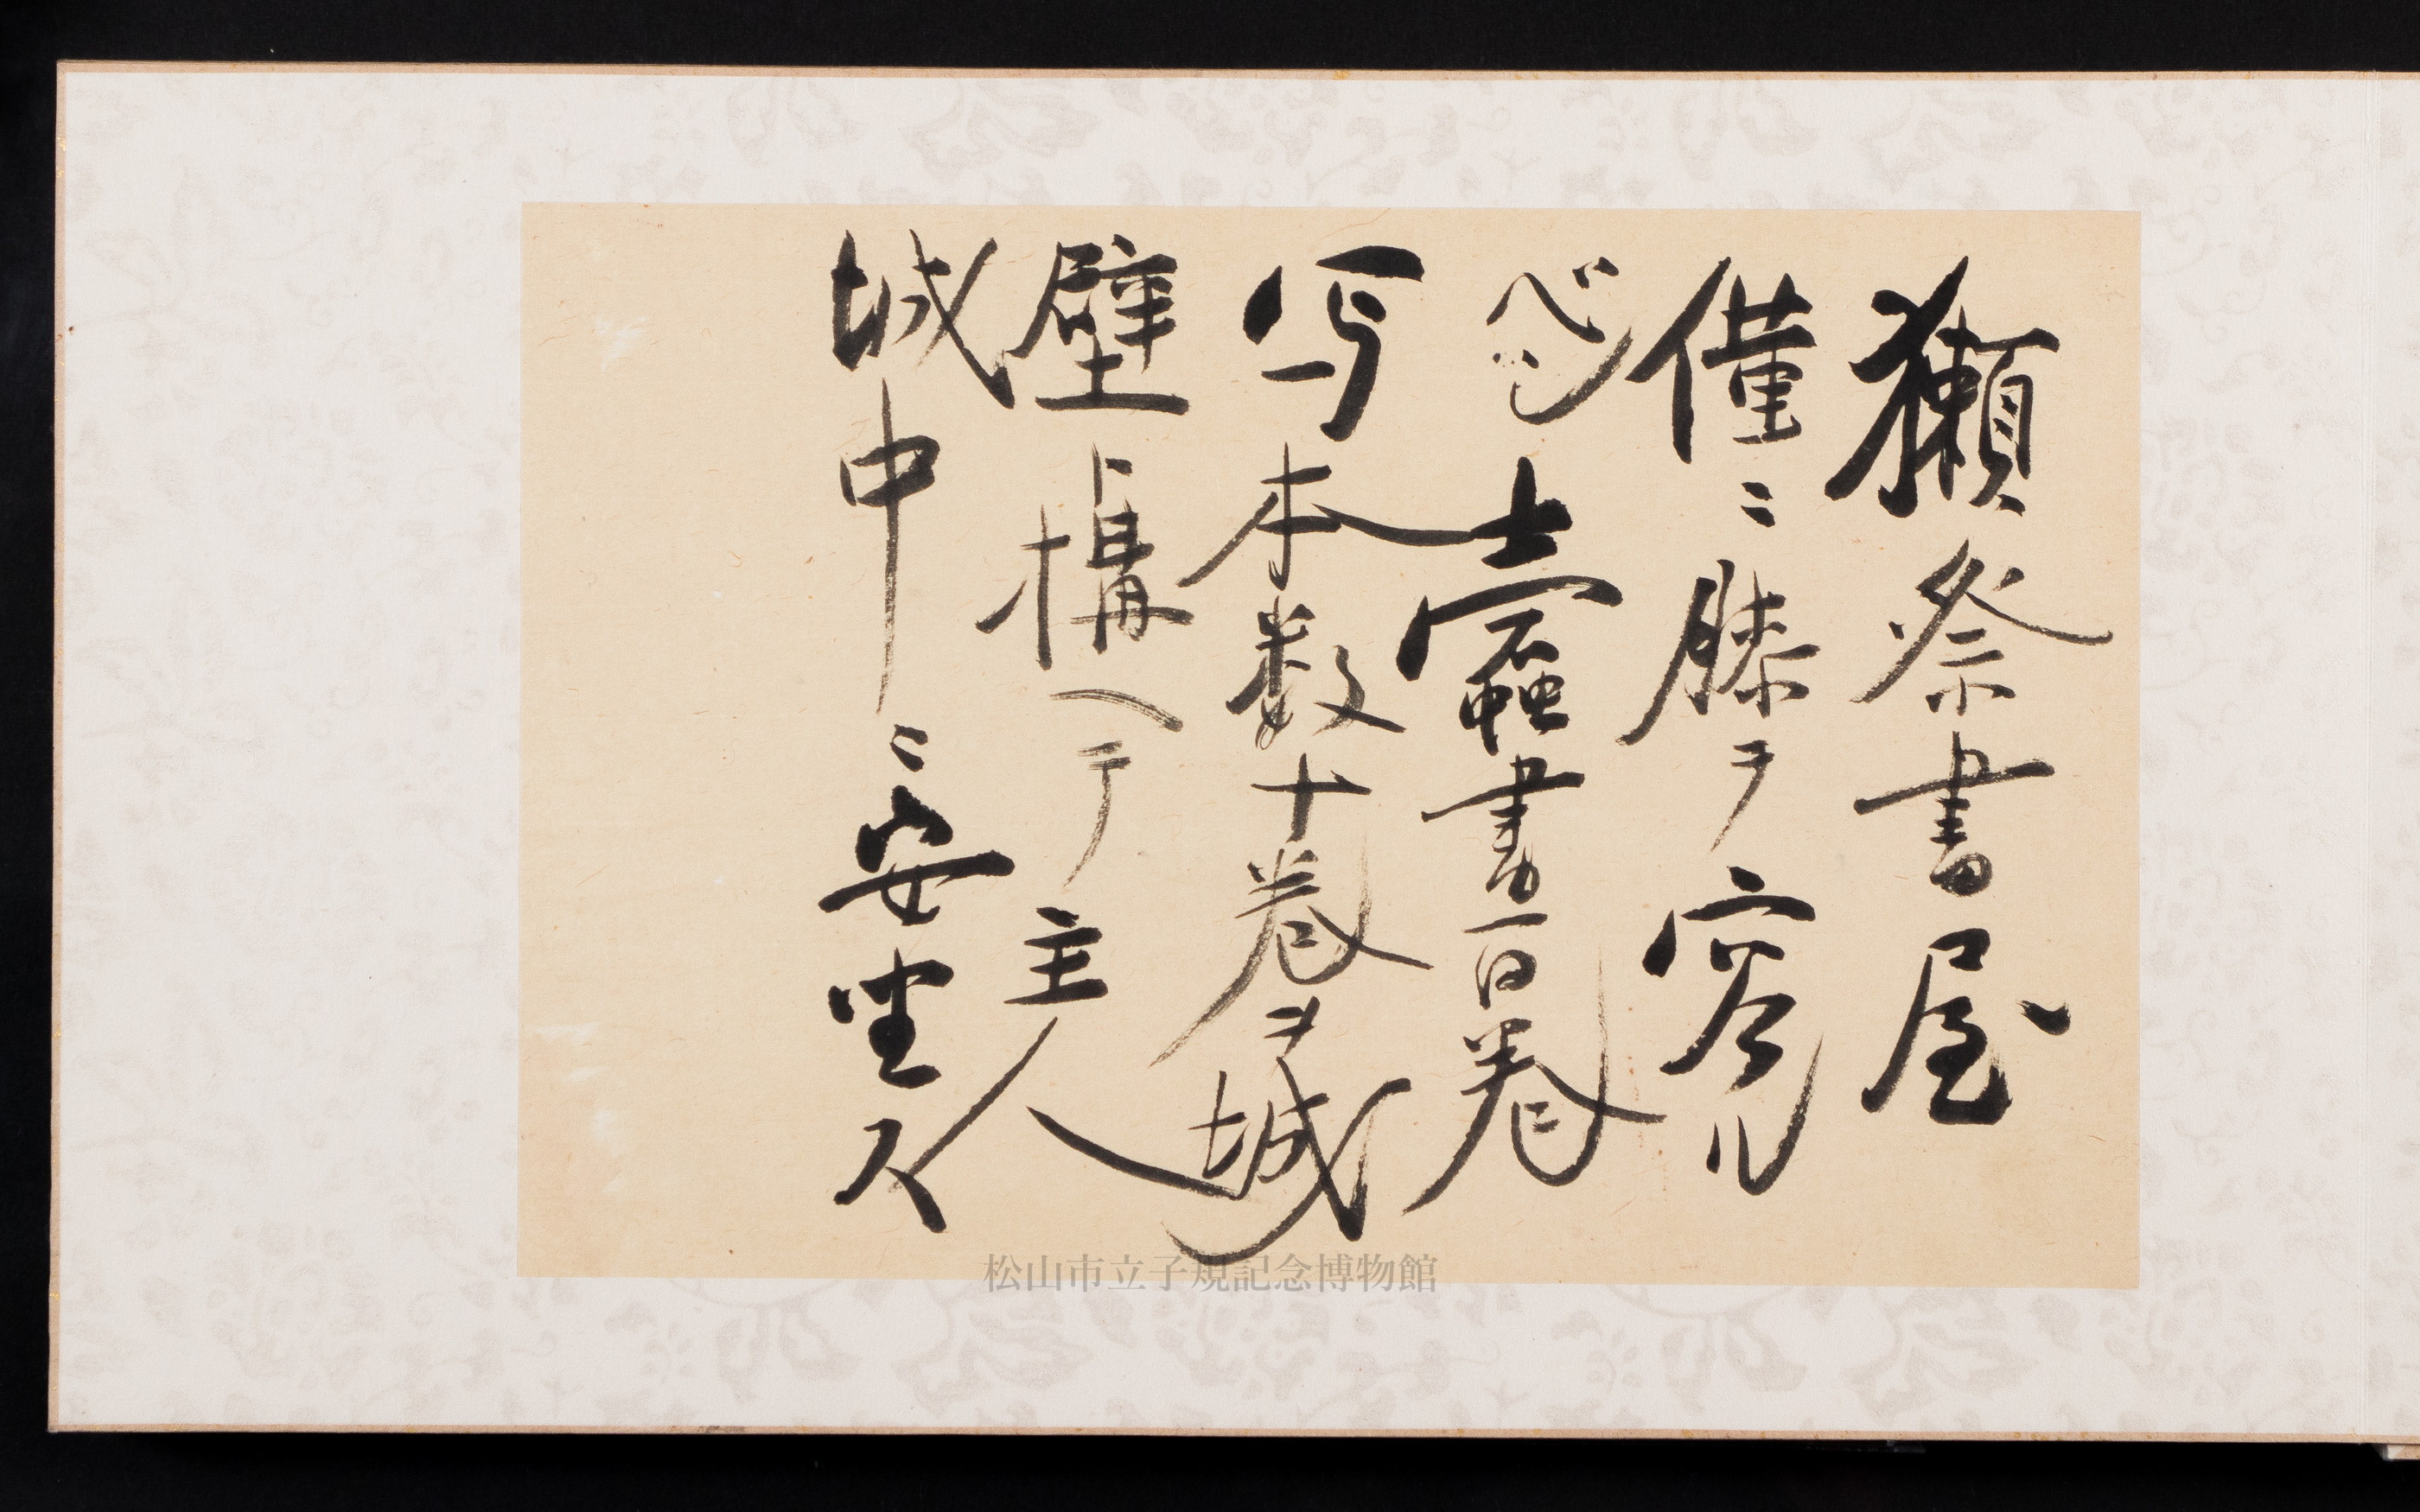 獺祭書屋
僅ニ膝ヲ容ル
ベシ蠹書百巻
写本数十巻ヲ城
壁ト構ヘテ主人
城中ニ安坐ス
松山市立子規記念博物館